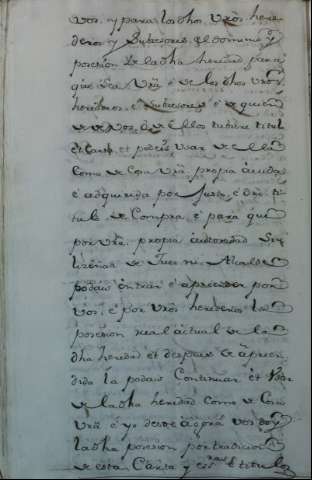 vos, y para los dhos Vrōs here
deros y Subcesores, el dominio y
posesion de la dha heredad para
que sea Vrā é de los dhos Vrōs
herederos é Subcesores é de quien
de vos, ó de ellos tubiere titul
et podais usar de ella
como de cosa Vrā propia auida
é adquirida por Justo, é dro ti
tulo de Compra, é para que
por Vrā propia autoridad sin
lizencia de Juez ni Alcalde
podais entrar é aprender por
vos, é por Vrōs herederos la
posesion real actual de la
dha heredad et despues de apren
dida la podais Continuar et Usar
de la dha heredad como de Cosa
Vrā é yo desde agora vos doy
la dha posesion por tradicion
de esta Carta y el titulo